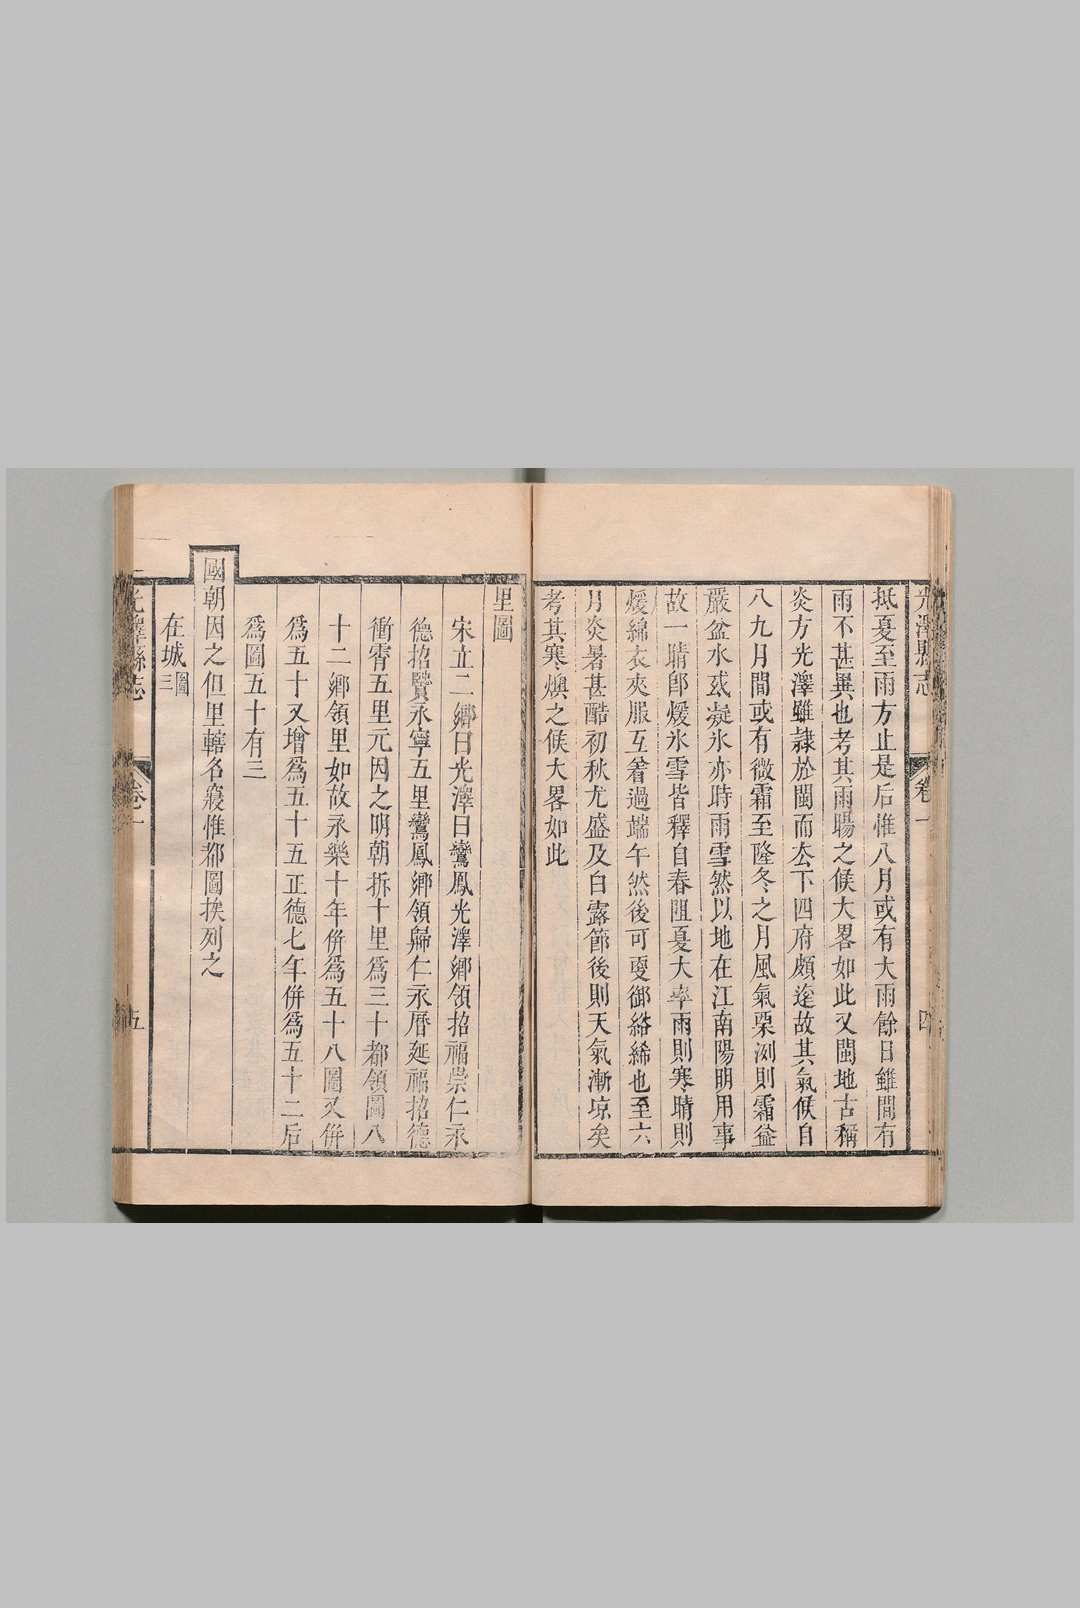 光澤縣志
卷一
四
抵夏至雨方止是后惟八月或有大雨餘日雖間有
雨不甚異也考其雨暘之候大畧如此又閩地古稱
炎方光澤雖隸於閩而去下四府頗遠故其氣候自
八九月間或有微霜至隆冬之月風氣栗冽則霜益
嚴盆水或凝氷亦時雨雪然以地在江南陽明用事
故一晴卽煖氷雪皆釋自春徂夏大率雨則寒晴則
煖綿衣夾服互着過端午然後可更御綌絺也至六
月炎暑甚酷初秋尤盛及白露節後則天氣漸凉矣
考其寒燠之候大畧如此
里圖
宋立二鄉曰光澤曰鸞鳳光澤鄉領招福崇仁永
德招賢永寧五里鸞鳳鄉領歸仁永曆延福招德
衝霄五里元因之明朝拆十里爲三十都領圖八
十二鄉領里如故永樂十年併爲五十八圖又併
爲五十又增爲五十五正德七年併爲五十二后
爲圖五十有三
國朝因之但里轄名寢惟都圖挨列之
在城三圖
光澤縣志
卷一
五